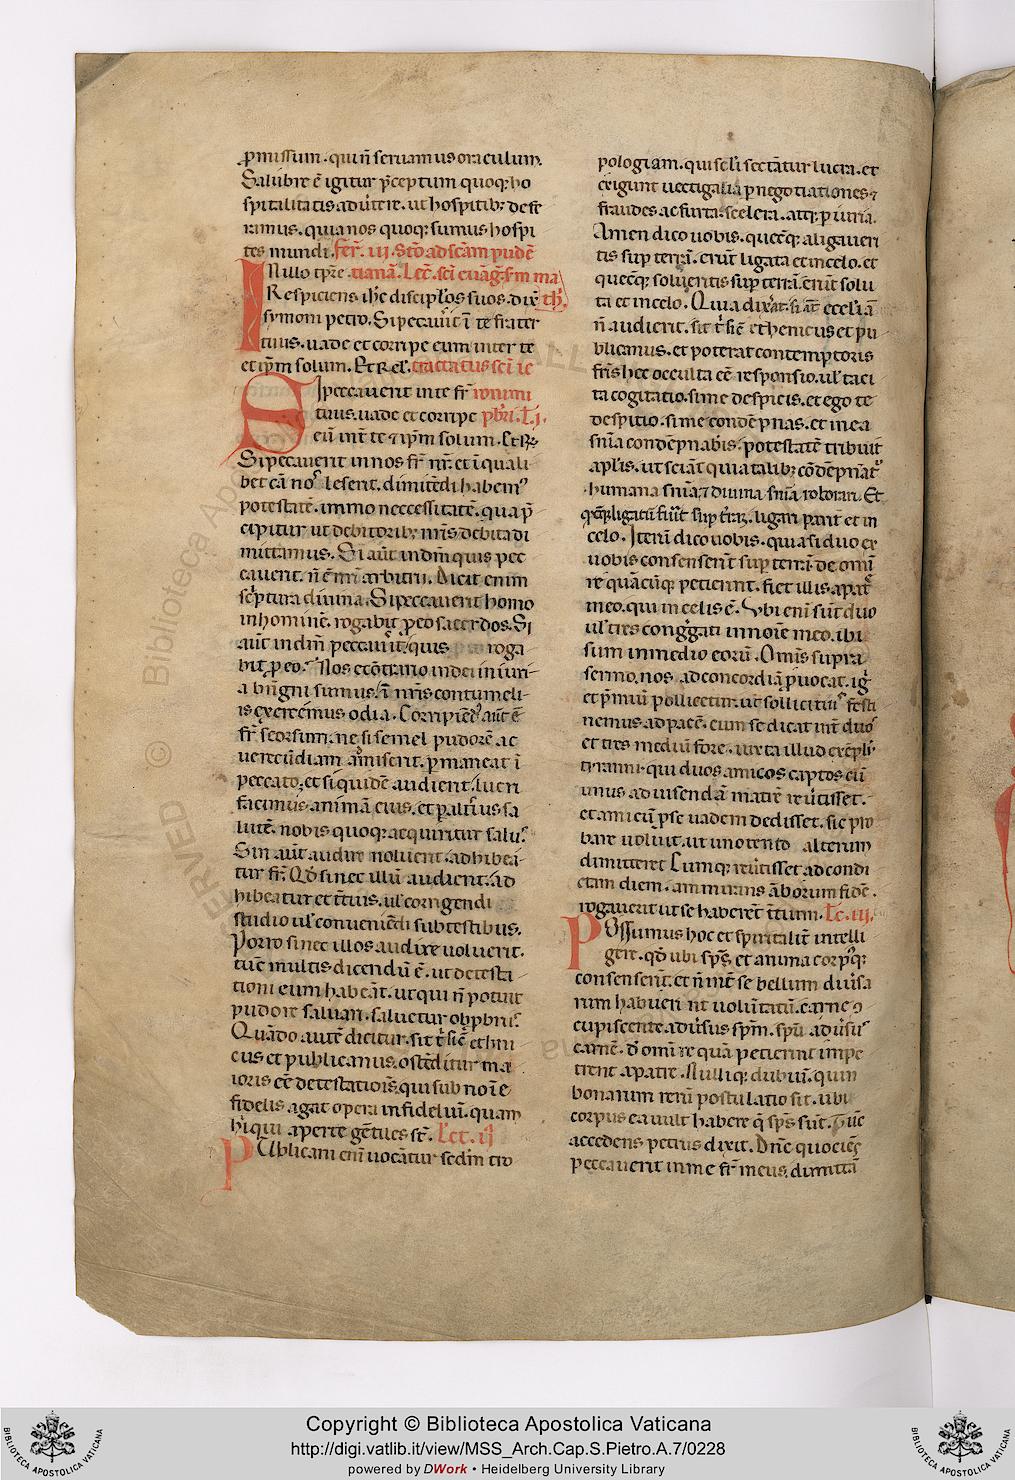 p̱missum. qui n̄ seruamus oraculum.
Salubre ē igitur p̄ceptum quoq; ho
spitalitatis aduertere. ut hospitib; defe
ramus. quia nos quoq; sumus hospi
tes mundi. Fer̄. iij. Stō ad scām pudē
IN illo tp̄re. tianā. Lec̄. sci euāg. sm̄ ma
Respiciens ih̄c discipl̓os suos. dix̄ th̄.
symoni petro. Si peccauit ī te frater
tuus. uade et corripe eum inter te
et ip̄m solum. Et Rel̓. tractatus sci ie
SI peccauerit in te fr̄ ronimi
tuus. uade et corripe pbr̄i. L̄. j.
eū int̄ te ⁊ ip̄m solum. Et Rl̓.
Si peccauerit in nos fr̄ nr̄. et ī quali
bet cā nos leserit. dimittēdi habem᾽
potestatē. immo neccessitatē. qua p̄
cipitur ut debitorib; nr̄is debita di
mittamus. Si aut̄ in dm̄ quis pec
cauerit. n̄ ē nr̄i arbitrii. Dicit enim
sc̓ptura diuina. Si peccauerit homo
in hominē. rogabit p̱ eo sacerdos. Si
aut̄ in dm̄ peccauerit. quis roga
bit p̱ eo. Nos ecōtrario in dei iniuri
a bn̄gni sumus. ī nr̄is contumeli
is exercemus odia. Corripiēd᾽ aut̄ ē
fr̄ seorsum. ne si semel pudorē ac
uerecūdiam amiserit. p̱maneat ī
peccato. et siquidē audierit. lucri
facimus animā eius. et p̱ alt̓ius sa
lutē. nobis quoq; acquiritur salus.
Sin aut̄ audire noluerit. adhibea
tur fr̄. Qd̄ si nec illū audierit. ad
hibeatur et tt̓ius. ul̓ corrigendi
studio ul̓ conueniēdi sub testibus.
Porro si nec illos audire uoluerit.
tūc multis dicendū ē. ut detesta
tioni eum habeāt. ut qui n̄ potuit
pudore saluari. saluetur obp̱briis.
Quādo autē dicitur. sit t̓ sic̄ ethni
cus et publicanus. ostēditur ma
ioris eē detestationis. qui sub noīe
fidelis agat opera infideliū. quam
hi qui aperte gētiles st̄. Lec̄t. ij
PUblicani enī uocātur sc̄dm tro
pologiam. qui seculi sectātur lucra. et
exigunt uectigalia p̱ negotiationes ⁊
fraudes ac furta. scelera. atq; p̱iuria.
Amen dico uobis. quecq; aligaueri
tis sup̱ terrā. erūt ligata et in celo. et
quecq; solueritis sup̱ terrā. erūt solu
ta et in celo. Quia dixat. si aūt eccl̓iā
n̄ audierit. sit t̓ sic̄ ethenicus et pu
blicanus. et poterat contemptoris
fr̄is hec occulta eē responsio. ul̓ taci
ta cogitatio. si me despicis. et ego te
despitio. si me condēpnas. et mea
snīa condēpnabis. potestatē tribuit
apl̓is. ut sciāt quia talib; cōdēpnat᾽
humana snīa. ⁊ diuina snīa roborari. Et
ligatū fu᾽it sup t̓raz. ligari pariter et in
celo. Iterū dico uobis. quia si duo ex
uobis consenserīt sup̱ terrā. de omī
re quācūq; petierint. fiet illis a patre
meo. qui in celis ē. Vbi enī sūt duo
ul̓ tres congregati in noīe meo. ibi
sum in medio eorū. Omīs supra
sermo. nos ad concordiā p̱uocat. ig
et p̄miū pollicetur. ut sollicitius festi
nemus ad pacē. cum se dicat int̄ duos
et tres mediū fore. iuxta illud exēpli
tiranni. qui duos amicos captos cū
unus ad uisendā matrē reuertisset.
et amicū p̱ se uadem dedisset. sic pro
bare uoluit. ut uno tento alterum
dimitteret. Cumq; reuertisset ad condi
ctam diem. ammirans āborum fidē.
rogauerit ut se haberēt tertium. Lc̄. iij.
POssumus hoc et spiritalit̄ intelli
gere. qd̄ ubi sp̄s et anima corpusq;
consenserīt. et n̄ int̄ se bellum diuersa
rum habuerint uolūtatū. carne 9
cupiscente aduersus sp̄m. sp̄u aduersus
carnē. d̓ omī re quā petierint impe
trent a patre. Nulliq; dubiū. quin
bonarum rerū postulatio sit. ubi
corpus ea uult habere q̄ sp̄s sūt. Tūc
accedens petrus dixit. Dn̄e quociēs
peccauerit in me fr̄ meus. dimittā
Copyright © Biblioteca Apostolica Vaticana
http://digi.vatlib.it/view/MSS_Arch.Cap.S.Pietro.A.7/0228
powered by DWork • Heidelberg University Library
BIBLIOTECA APOSTOLICA VATICANA
BIBLIOTECA APOSTOLICA VATICANA